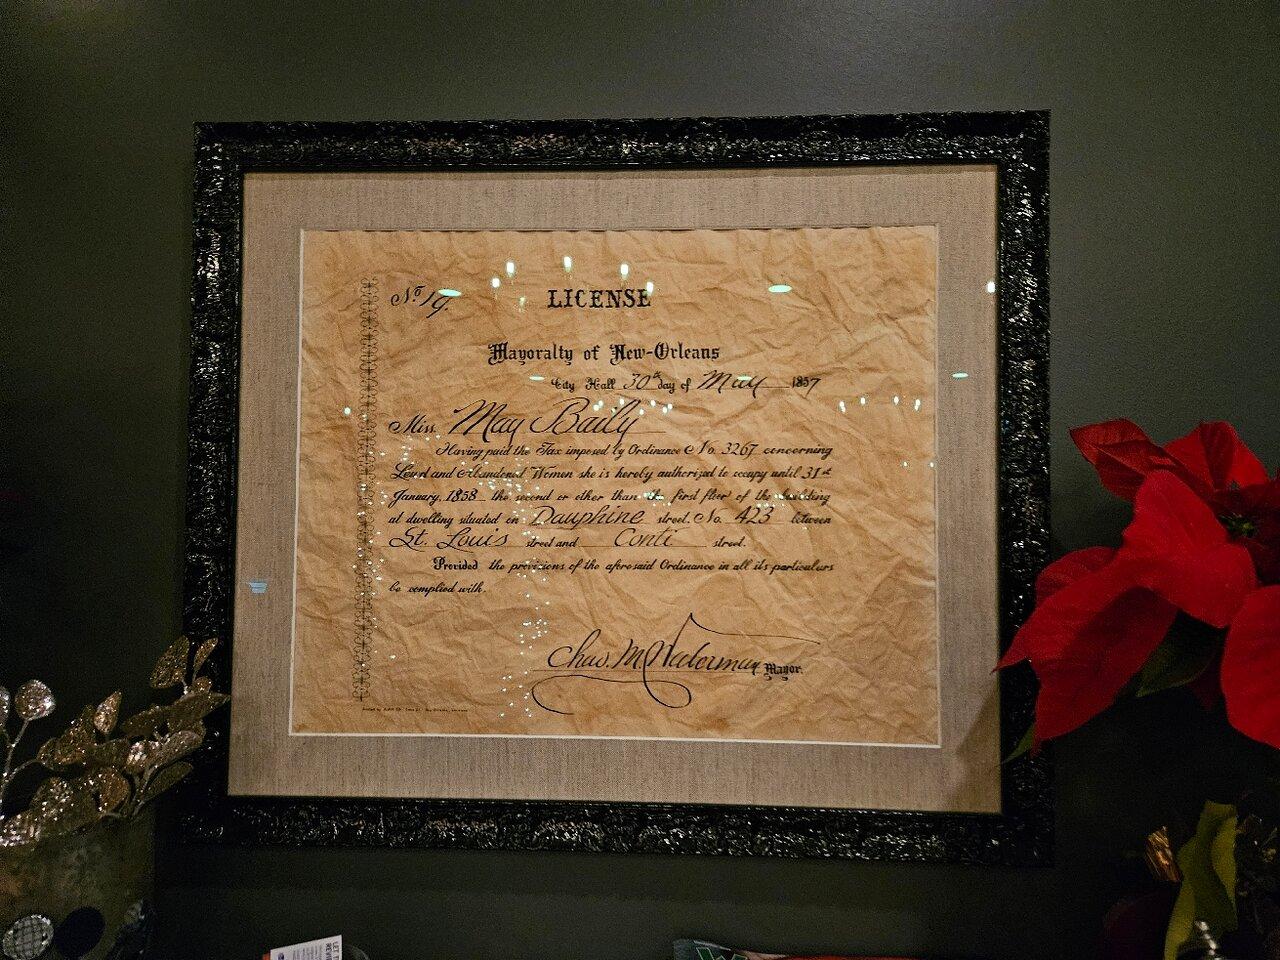 No. 19.
LICENSE
Mayoralty of New-Orleans
City Hall 30th day of May 1857
Miss May Baily
Having paid the Tax imposed by Ordinance No. 3267 concerning
Lewd and Abandoned Women she is hereby authorized to occupy until 31st
January, 1858 the second or other than the first floor of the building
at dwelling situated on Dauphine street, No. 423 between
St. Louis street and Conti street.
Provided the provisions of the aforesaid Ordinance in all its particulars
be complied with.
Chas. M. Waterman Mayor.